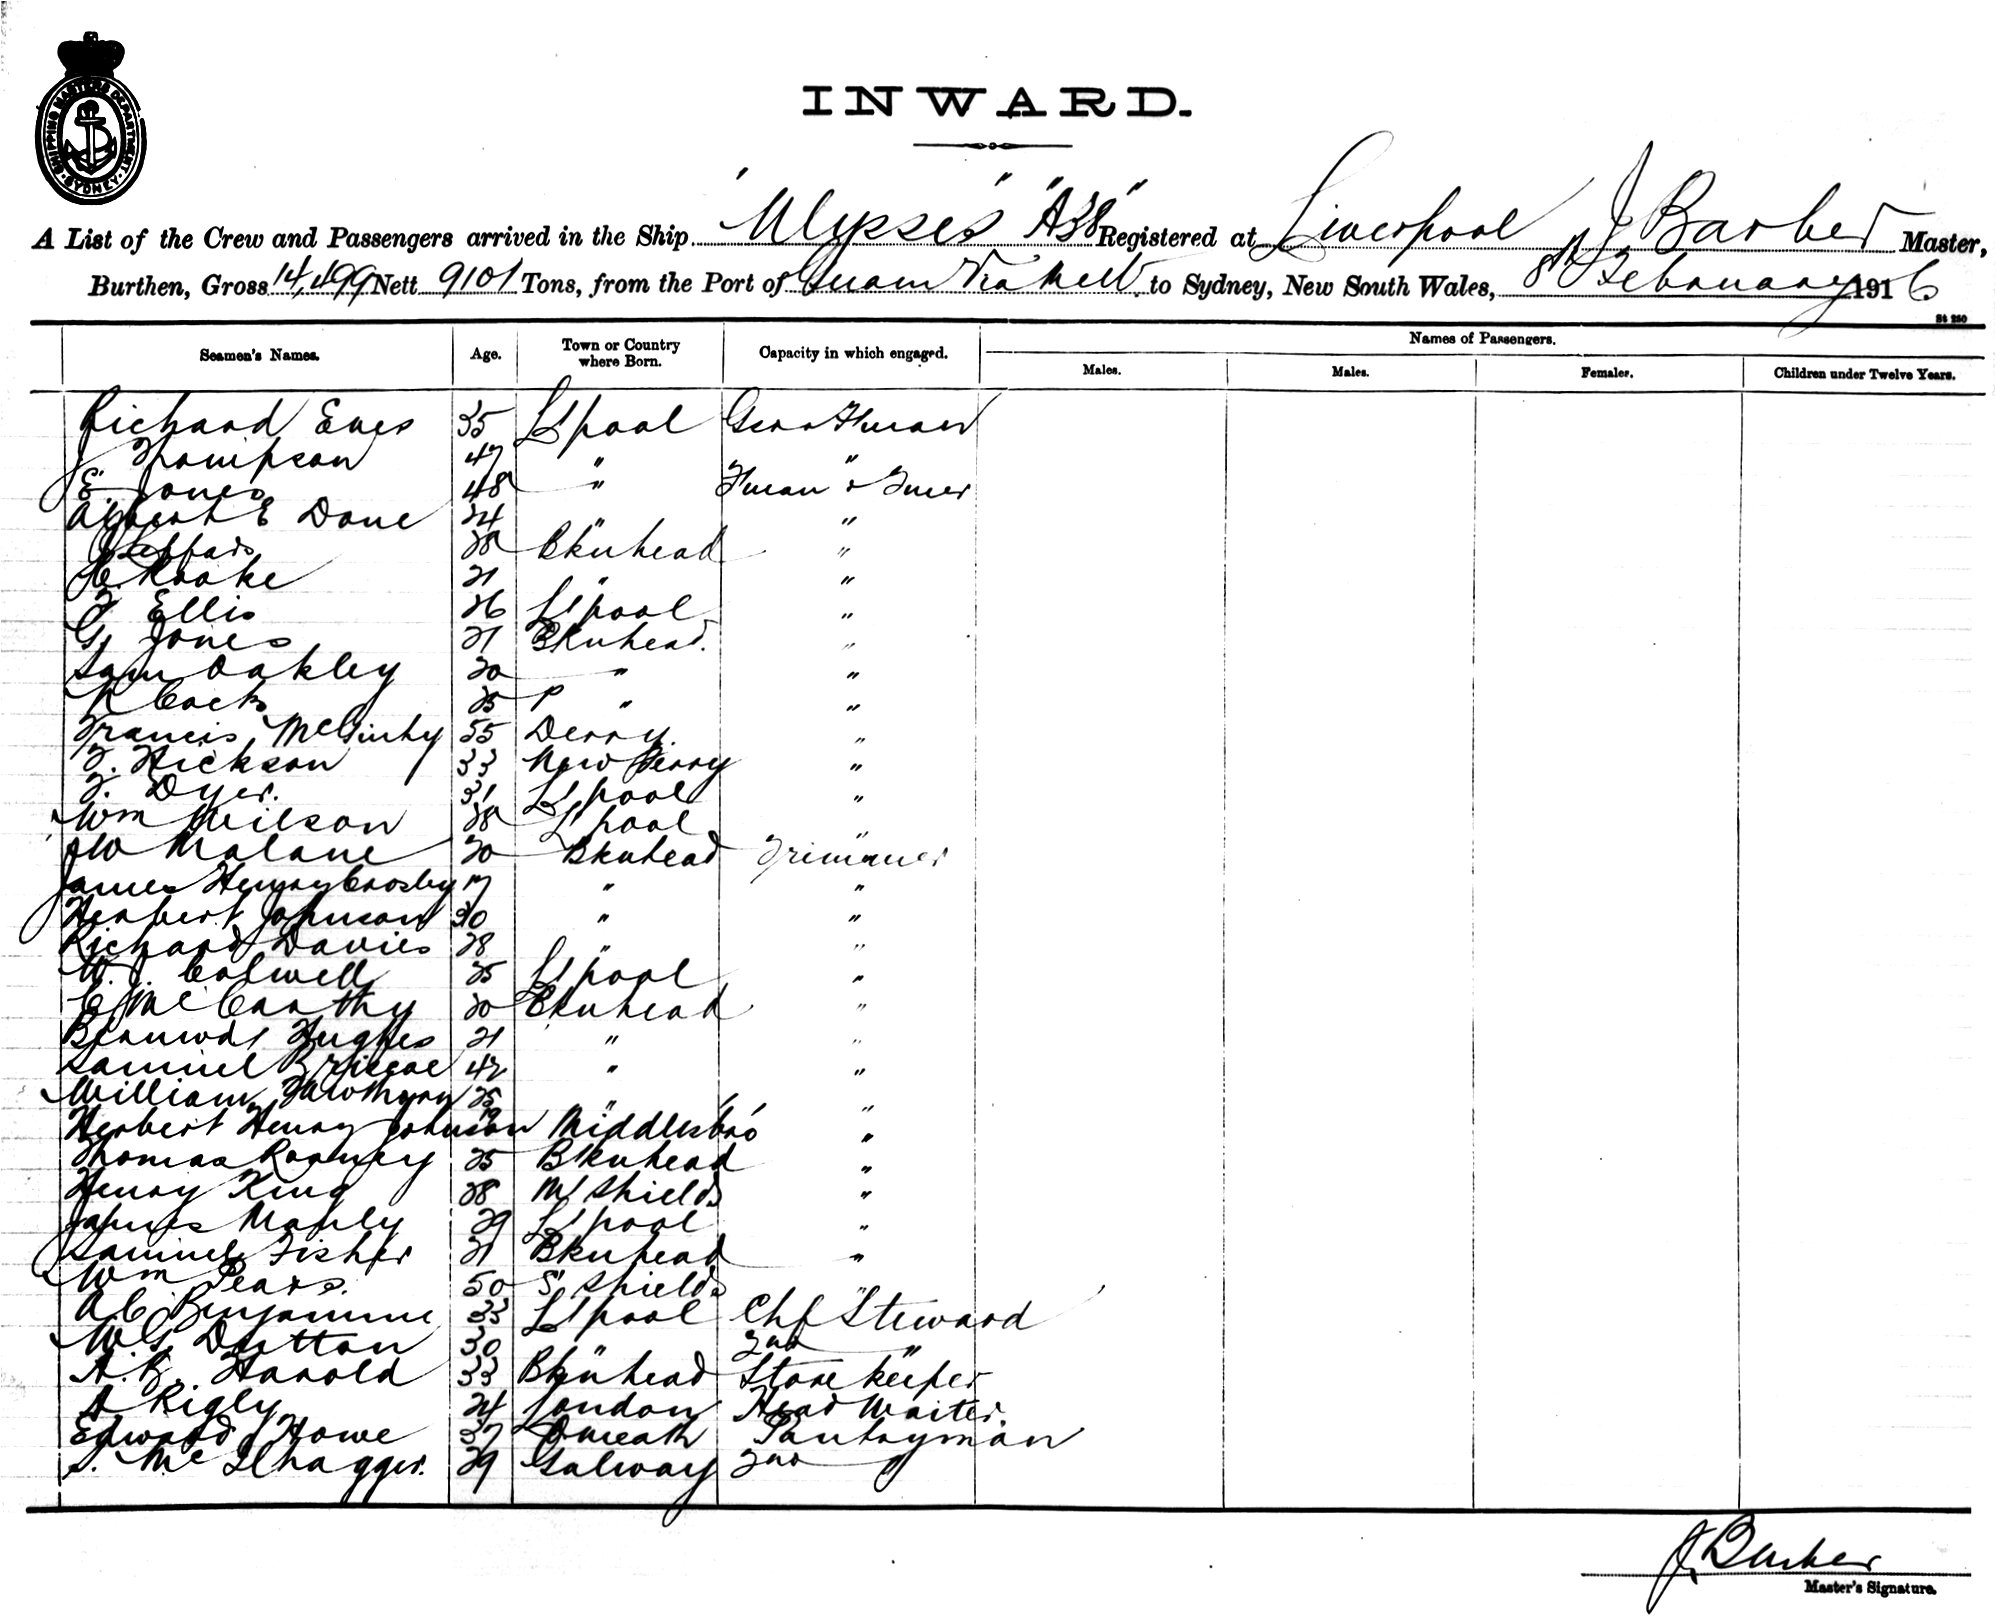 SHIPPING MASTERS DEPARTMENT. SYDNEY.
INWARD.
A List of the Crew and Passengers arrived in the Ship "Ulysses" "A38" Registered at Liverpool J Barber Master,
Burthen, Gross 14,499 Nett 9101 Tons, from the Port of via Melb. to Sydney, New South Wales, 8th February 1916
St 250
Seamen's Names. Age. Town or Country where Born. Capacity in which engaged. Names of Passengers.
Males. Males. Females. Children under Twelve Years.
Richard Eves 35 L'pool
J Thompson 47 " "
E. Jones 48 " Fman & Tmer
Albert E Done 24 " "
28 Bknhead "
Rooke 21 " "
F Ellis 26 L'pool "
G. Jones 21 Bknhead. "
Sam Oakley 20 " "
R Cock 25 " "
Francis McGinty 55 Derry. "
F. Hickson 33 New Ferry "
F. Dyer. 31 L'pool "
Wm Wilson 28 L'pool "
J W Malone 20 Bknhead Trimmer
James Henry Crosby 17 " "
Herbert Johnson 30 " "
Richard Davies 28 " "
W. J. Colwell 25 L'pool "
C McCarthy 20 Bknhead "
Hughes 21 " "
Samuel Briscoe 42 " "
William 25 " "
Herbert Henry Johnson 19 Middlesbro' "
Thomas Rooney 25 Bknhead "
Henry King 28 N' Shields "
James Manly 29 L'pool "
Samuel Fisher 21 Bknhead "
Wm Pears. 50 S' Shields "
A C Benjamine 33 L'pool Chf Steward
W. G. Dutton 30 " 2nd "
A. B. Harold 33 Bknhead Storekeeper
A Rigby 24 London Head Waiter.
Edward Howe 37 Omeath Pantryman
29 Galway 2nd "
J. Barber
Master's Signature.